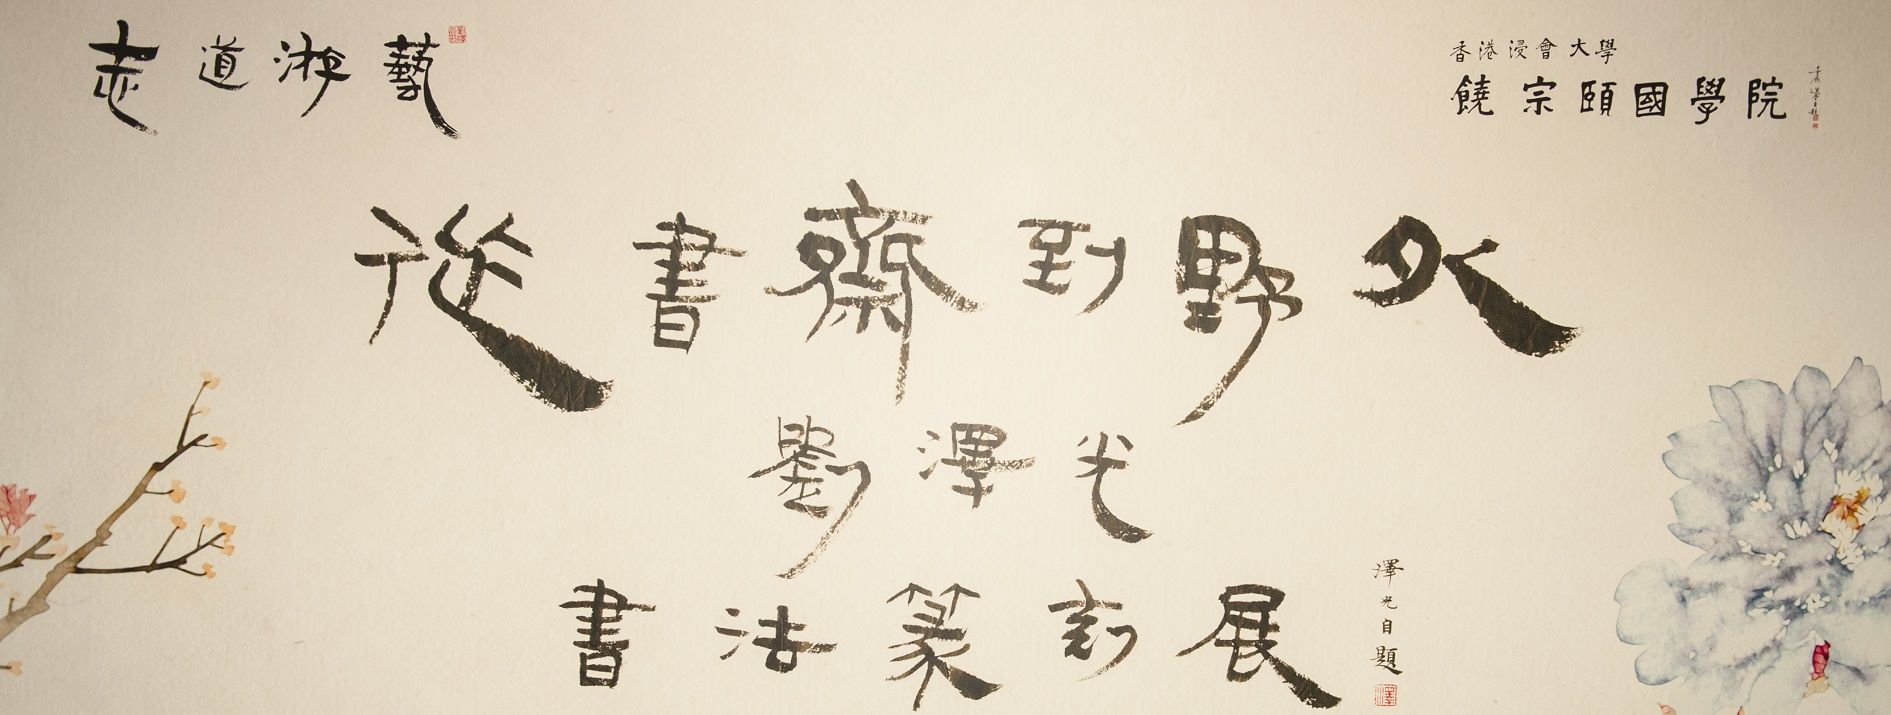 志道游藝
香港浸會大學
饒宗頤國學院
從書齋到野外
劉澤光
書法篆刻展
澤光自題